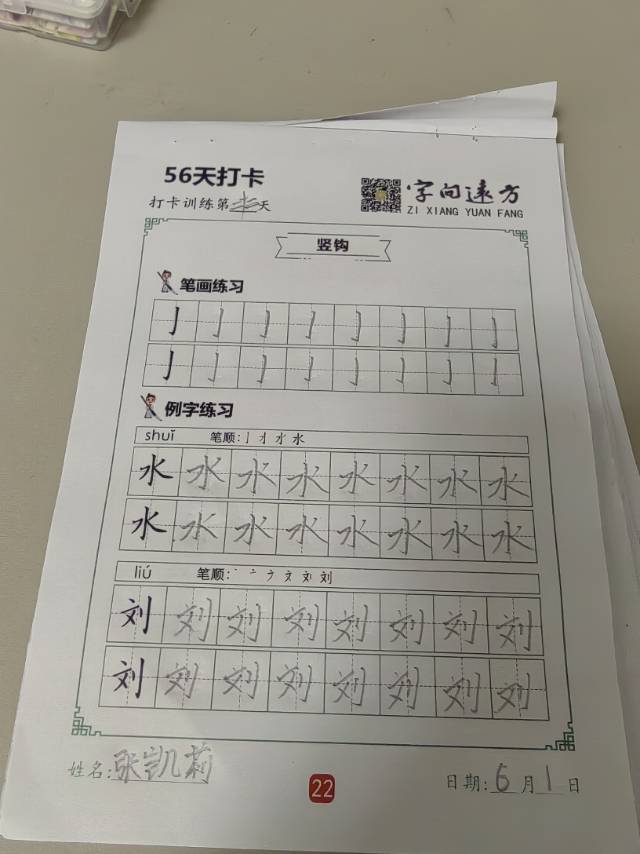 56天打卡
打卡训练第 天
字向远方
ZI XIANG YUAN FANG
竖钩
笔画练习
亅 亅 亅 亅 亅 亅 亅 亅
亅 亅 亅 亅 亅 亅 亅 亅
例字练习
shuǐ 笔顺:
水 水 水 水 水 水 水 水
水 水 水 水 水 水 水 水
liú 笔顺:
刘 刘 刘 刘 刘 刘 刘 刘
刘 刘 刘 刘 刘 刘 刘 刘
姓名:张凯莉
22
日期:6月1日